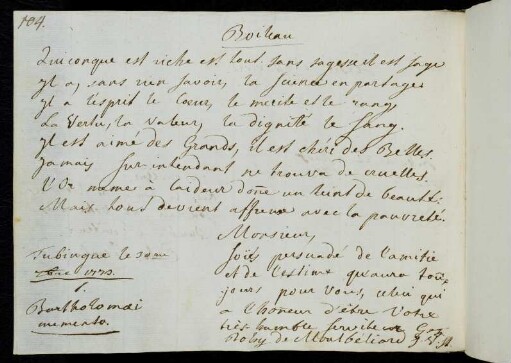 104.
Boileau
Quiconque est riche est tout. sans sagesse il est sage
Jl a, sans rien savoir, la science en partage
Jl a l'esprit le Coeur, le merite et le rang,
La Vertu, la valeur, la dignité le Sang.
Jl est aimé des Grands, il est chéri des Belles.
Jamais Sur-intendant ne trouva de cruelles.
L'Or meme à laideur done un teint de beauté.
Mais tout devient affreux avec la pauvreté.
Monsieur,
Soiës persuadé de l'amitie
et de l'estime qu'aura tou=
jours pour Vous, celui qui
a l'honeur d'être Votre
très humble serviteur
de Montbéliard
Tubingue le
1773.
Bartholomai
memento.